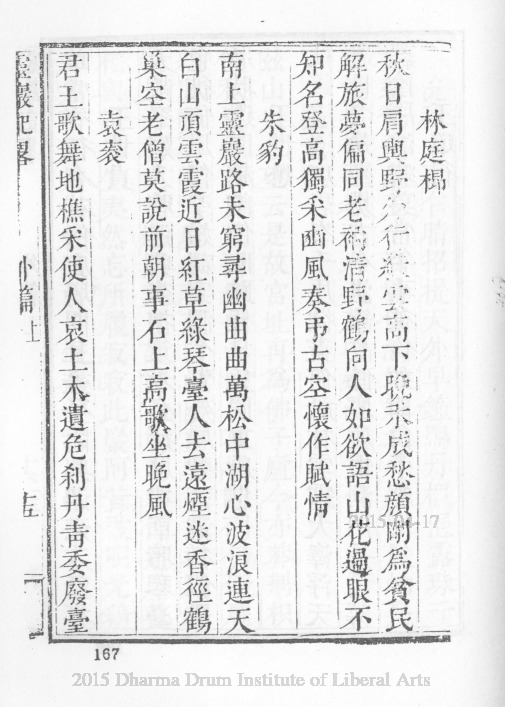 林庭㭿
秋日肩輿野外行綵雲高下晚禾成愁顏剛爲貧民
解旅夢偏同老衲清野鶴向人如欲語山花過眼不
知名登高獨采豳風奏弔古空懷作賦情
朱豹
南上靈巖路未窮尋幽曲曲萬松中湖心波浪連天
白山頂雲霞近日紅草綠琴臺人去遠煙迷香徑鶴
巢空老僧莫說前朝事石上高歌坐晚風
袁袠
君王歌舞地樵采使人哀土木遺危刹丹青委廢臺
靈巖記畧
外篇上
十五
2015-04-17
167
2015 Dharma Drum Institute of Liberal Arts